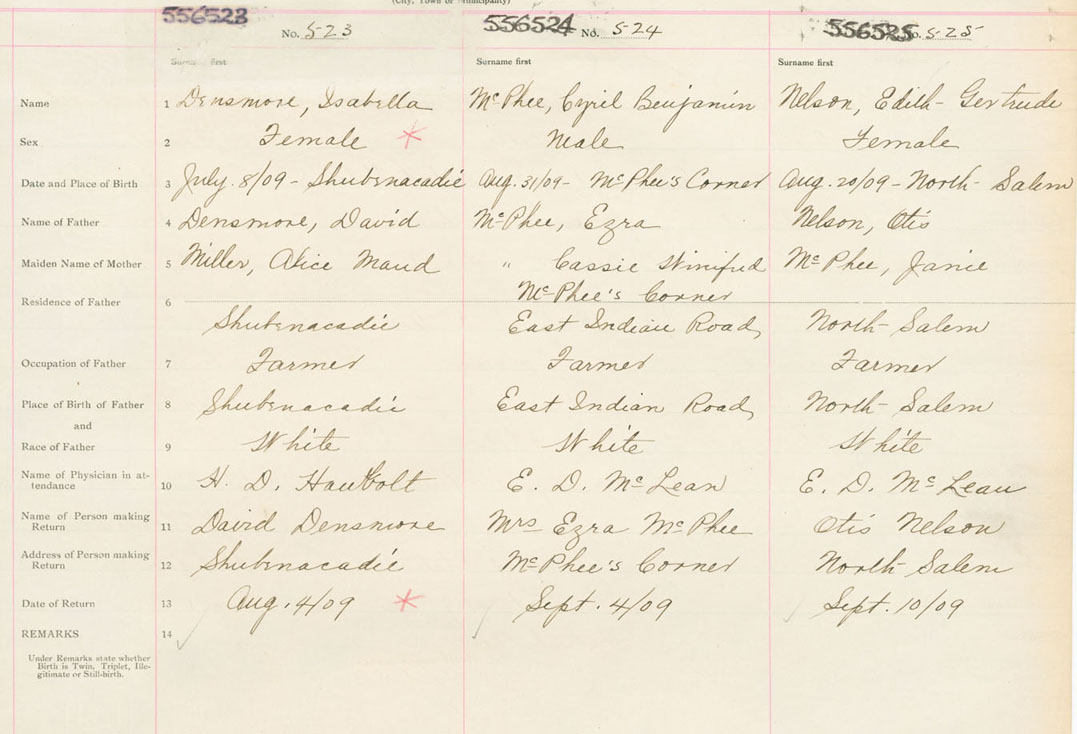 (City, Town or Municipality)
556523 556524 556525
No. 523 No. 524 No. 525
Surname first Surname first Surname first
Name 1 Densmore, Isabella McPhee, Cyril Benjamin Nelson, Edith Gertrude
Sex 2 Female * Male Female
Date and Place of Birth 3 July. 8/09 - Shubenacadie Aug. 31/09 - McPhee's Corner Aug. 20/09 - North Salem
Name of Father 4 Densmore, David McPhee, Ezra Nelson, Otis
Maiden Name of Mother 5 Miller, Alice Maud " Cassie Winifred McPhee, Janie
McPhee's Corner
Residence of Father 6 Shubenacadie East Indian Road, North Salem
Occupation of Father 7 Farmer Farmer Farmer
Place of Birth of Father 8 Shubenacadie East Indian Road, North Salem
and
Race of Father 9 White White White
Name of Physician in at-
tendance 10 H. D. E. D. McLean E. D. McLean
Name of Person making
Return 11 David Densmore Mrs Ezra McPhee Otis Nelson
Address of Person making
Return 12 Shubenacadie McPhee's Corner North Salem
Date of Return 13 Aug. 4/09 * Sept. 4/09 Sept. 10/09
REMARKS 14
Under Remarks state whether
Birth is Twin, Triplet, Ille-
gitimate or Still-birth.